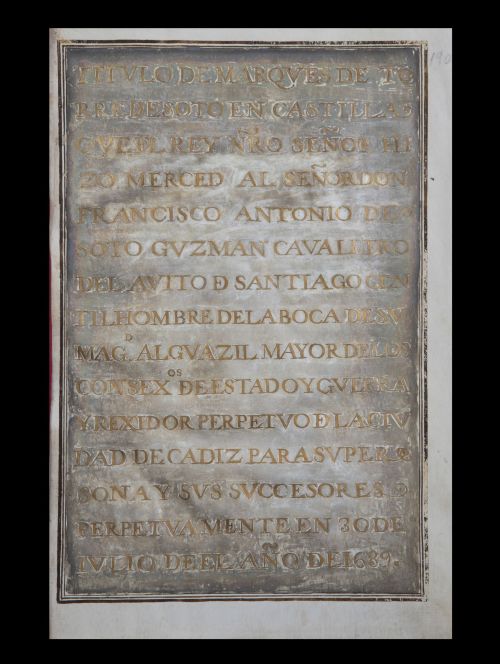 TITVLO DE MARQVES DE TO
RRE DE SOTO EN CASTILLA
QVE EL REY NRŌ SEÑOR HI
ZO MERCED AL SEÑOR DON
FRANCISCO ANTONIO DE
SOTO GVZMAN CAVALLERO
DEL AVITO Đ SANTIAGO GEN
TILHOMBRE DE LA BOCA DE SV
MAG.D ALGVAZIL MAYOR DE LOS
CONSEXOS DE ESTADO Y GVERRA
Y REXIDOR PERPETVO Đ LA CIV
DAD DE CADIZ PARA SV PER
SONA Y SVS SVCCESORES
PERPETVAMENTE EN 30 DE
IVLIO DE EL AÑO DE 1689.
190